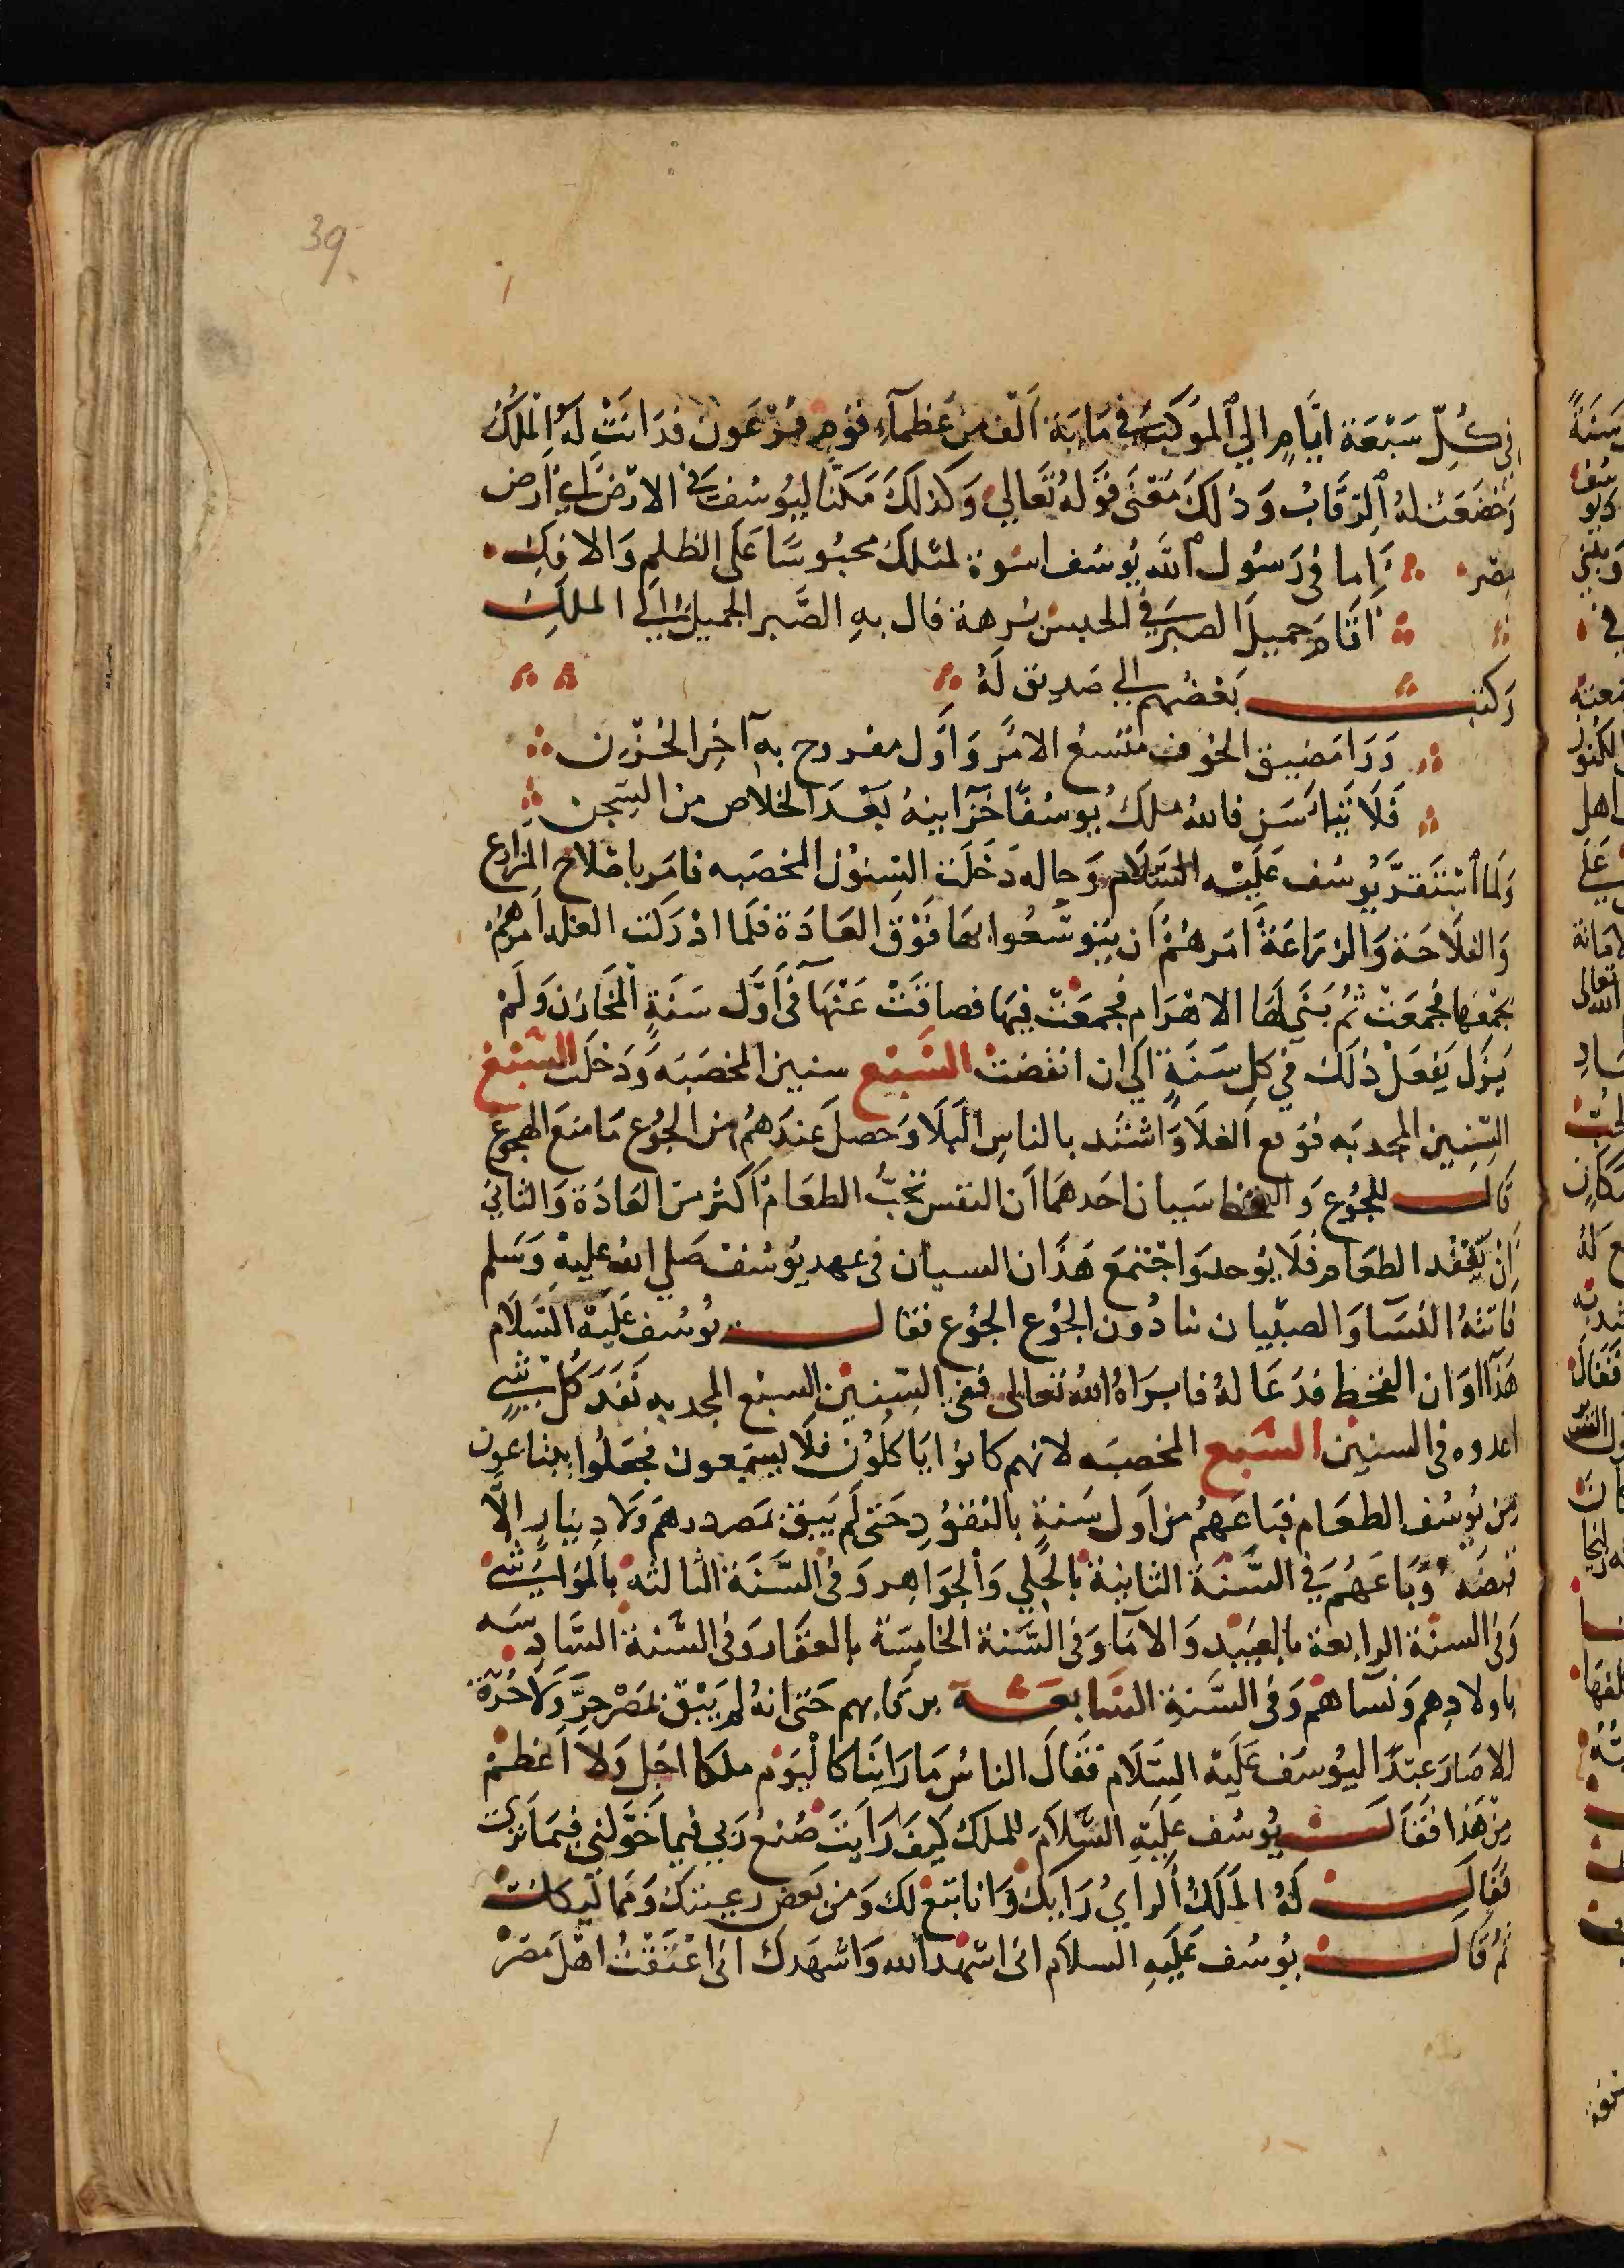 39
في كُلِّ سَبْعَة ايَّامٍ الي المَوكَب في مَايَة اَلف من عُظمآءِ قوم فرْعَون فدَانَتْ لَهُ المُلكُ
وَخضَعَتْ لهُ الرّقَابُ وَذلكَ مَعْنَى قوَلهُ تَعَالي وَكذلكَ مَكنّا ليُوسُف في الارْض اي ارض
مصْر اما في رَسُول الله يُوسُف اسْوة لمثلكَ محبُوسًا عَلى الظلم وَالافكِ
اقَامَ جميلَ الصبَر في الحبس برهة فال بهِ الصَّبر الجميل الى الملكِ
وَكتبَ بَعْضُهم الي صَدِيق لَهُ
وَرَا مَضيق الخوف متسعُ الامْر وَاوَل مفروح به آخِر الحُزْن
فَلَا تَيْاسَن فاللهُ ملكَ يُوسُفًا خَزَاينهُ بَعْدَ الخلاص من السّجن
وَلما استَقرَّ يُوسُف عَليْه السَّلام وَحاله دَخَلَت السّنُون المخصَبه فامَر باصْلاح المزَارع
وَالفلَاحَة وَالزرَاعَة امَرهُمْ اَن يتوسَّعُوا بهَا فوْقَ العَادَة فلَما ادْرَكت الغله امَرهُمْ
بجمعها فجمعَتْ ثمُ بَنَي لهَا الاهْرَام فجمعَتْ فيهَا فضاقَتْ عَنْهَا في اَوَّل سَنَةٍ المخَازن وَلَمْ
يَزل يَفعَلْ ذلكَ في كل سَنَةٍ الَي ان انقضَتْ السَّبْع سنين المخصَبَه وَدَخلَت السَّبْع
السّنين المجدبَه فوَقع الغلَا وَاشتَد بالناسِ البَلَا وَحصلَ عندَهُم من الجوُع مَا منعَ الهجوع
قالَ للجوُع وَالقحط سَبيان احَدهمَا اَن النفس تحبُّ الطعَامْ اَكثر من العَادَة وَالثاني
اَنْ يُفقَد الطعَام فَلَا يوُحد وَاجْتمعَ هَذَان السبيان في عهد يوُسُف صَلي الله عليهِ وَسَلم
فَاتتهُ النسَا وَالصبْيان نادُون الجُوع الجُوع فقالَ يوُسُف عَليْه السَّلَام
هَذا اوَان القحط فدَعَا لهُ فابرَاهُ اللهُ تعالى ففي السّنين السبْع المجدبه نَفدَ كُل شيٍ
اعدوه في السنين السَّبع المخصبَه لانهم كانوا يَاكلُون فلَا يشبَعون فجعَلُوا يبتاعون
من يُوسُف الطعَام فبَاعَهمُ من اَول سَنةٍ بالنقوُدِ حَتى لَم يَبق بمَصر درهَم وَلا دِينَارٍ الَّا
قبضَه وَبَاعَهُمْ في السَّنَة الثانيَة بالحُلي وَالجوَاهِر وَفي السَّنَة الثالثه بالمَوَاشي
وَفي السنَة الرابعة بالعَبيْد وَالآمَا وَفي السَّنة الخامِسَة بالعقَار وَفي السَّنة السَّادِسَه
باولادِهم وَنسَاهمْ وَفي السَّنةِ السَّابعَة برقابهم حَتى انهُ لم يَبْق بمَصْر حرَّ وَلاحُرَّة
الاصَارَعبَدًا ليُوسَف عَليَهْ السَّلَام فقَالَ الناسُ مَا رَايَنا كاليوَم ملكا اجَل وَلا اعظمْ
مِنْ هَذا فقَالَ يُوسُف عليَهِ السَّلاَم للملك كيفَ رَايتَ صُنعُ رَبي فيما خَوَّلني فيمَا تري
فقَالَ لهُ المَلك الراي رَايكَ وَانا تبع لك وَمن بَعض رعيتك وَمماليكك
ثم قاَلَ يوُسُف عَليَهِ السلاَم اني اشْهد الله وَاشهَدك اني اعْتَقْتُ اهْلَ مصْر